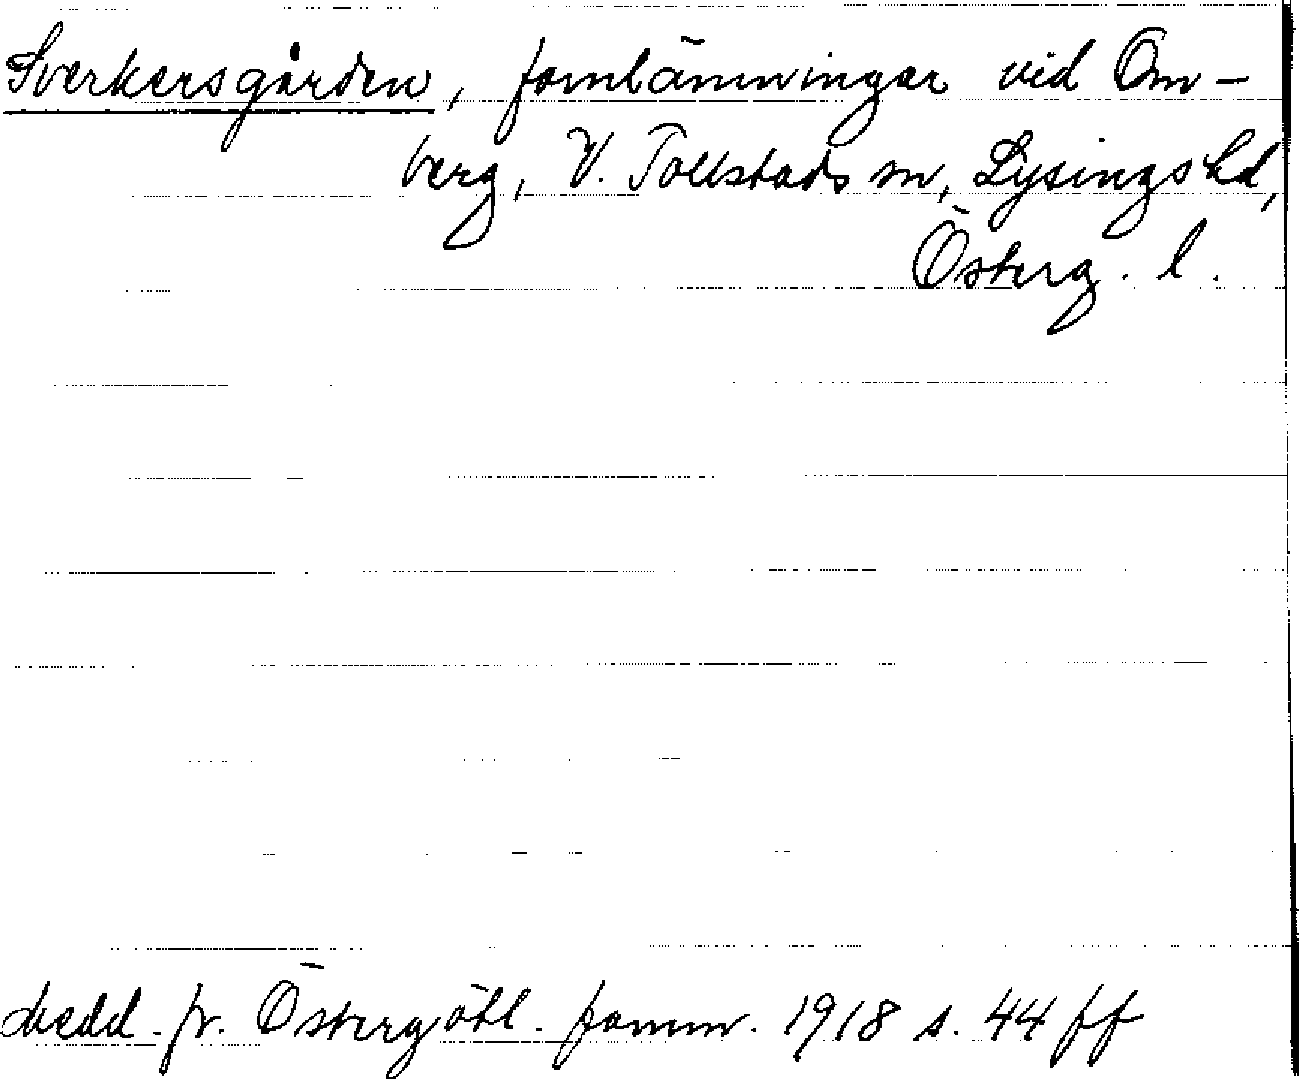 Sverkersgården, fornlämningar vid Om-
berg, V. Tollstads sn, Lysings hd,
Österg. l.
Medd. fr. Östergötl. fornm. 1918 s. 44 ff